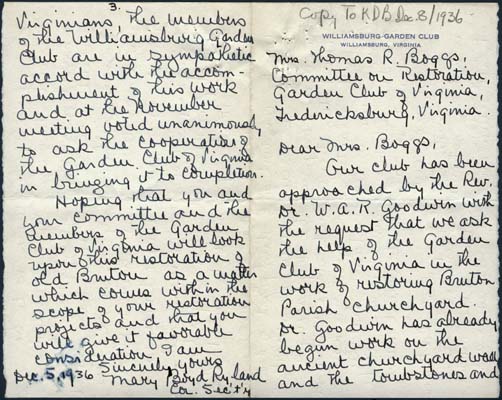 Copy to K D B Dec. 8/1936
WILLIAMSBURG GARDEN CLUB
WILLIAMSBURG, VIRGINIA
Mrs. Thomas R. Boggs,
Committee on Restoration,
Garden Club of Virginia,
Fredericksburg, Virginia.
Dear Mrs. Boggs,
Our club has been
approached by the Rev.
Dr. W.A.R. Goodwin with
the request that we ask
the help of the Garden
Club of Virginia in the
work of restoring Bruton
Parish Churchyard.
Dr. Goodwin has already
begun work on the
ancient churchyard wall
and the tombstones and
3.
Virginians the members
of the Williamsburg Garden
Club are in sympathetic
accord with the accom-
plishment of this work
and at the November
meeting voted unanimously
to ask the cooperation of
the Garden Club of Virginia
in bringing it to completion.
Hoping that you and
your committee and the
members of the Garden
Club of Virginia will look
upon this restoration of
old Bruton as a matter
which comes within the
scope of your restoration
projects and that you
will give it favorable
consideration, I am
Sincerely yours
Dec. 5, 1936 Mary Boyd Ryland
Cor. Sec't'y